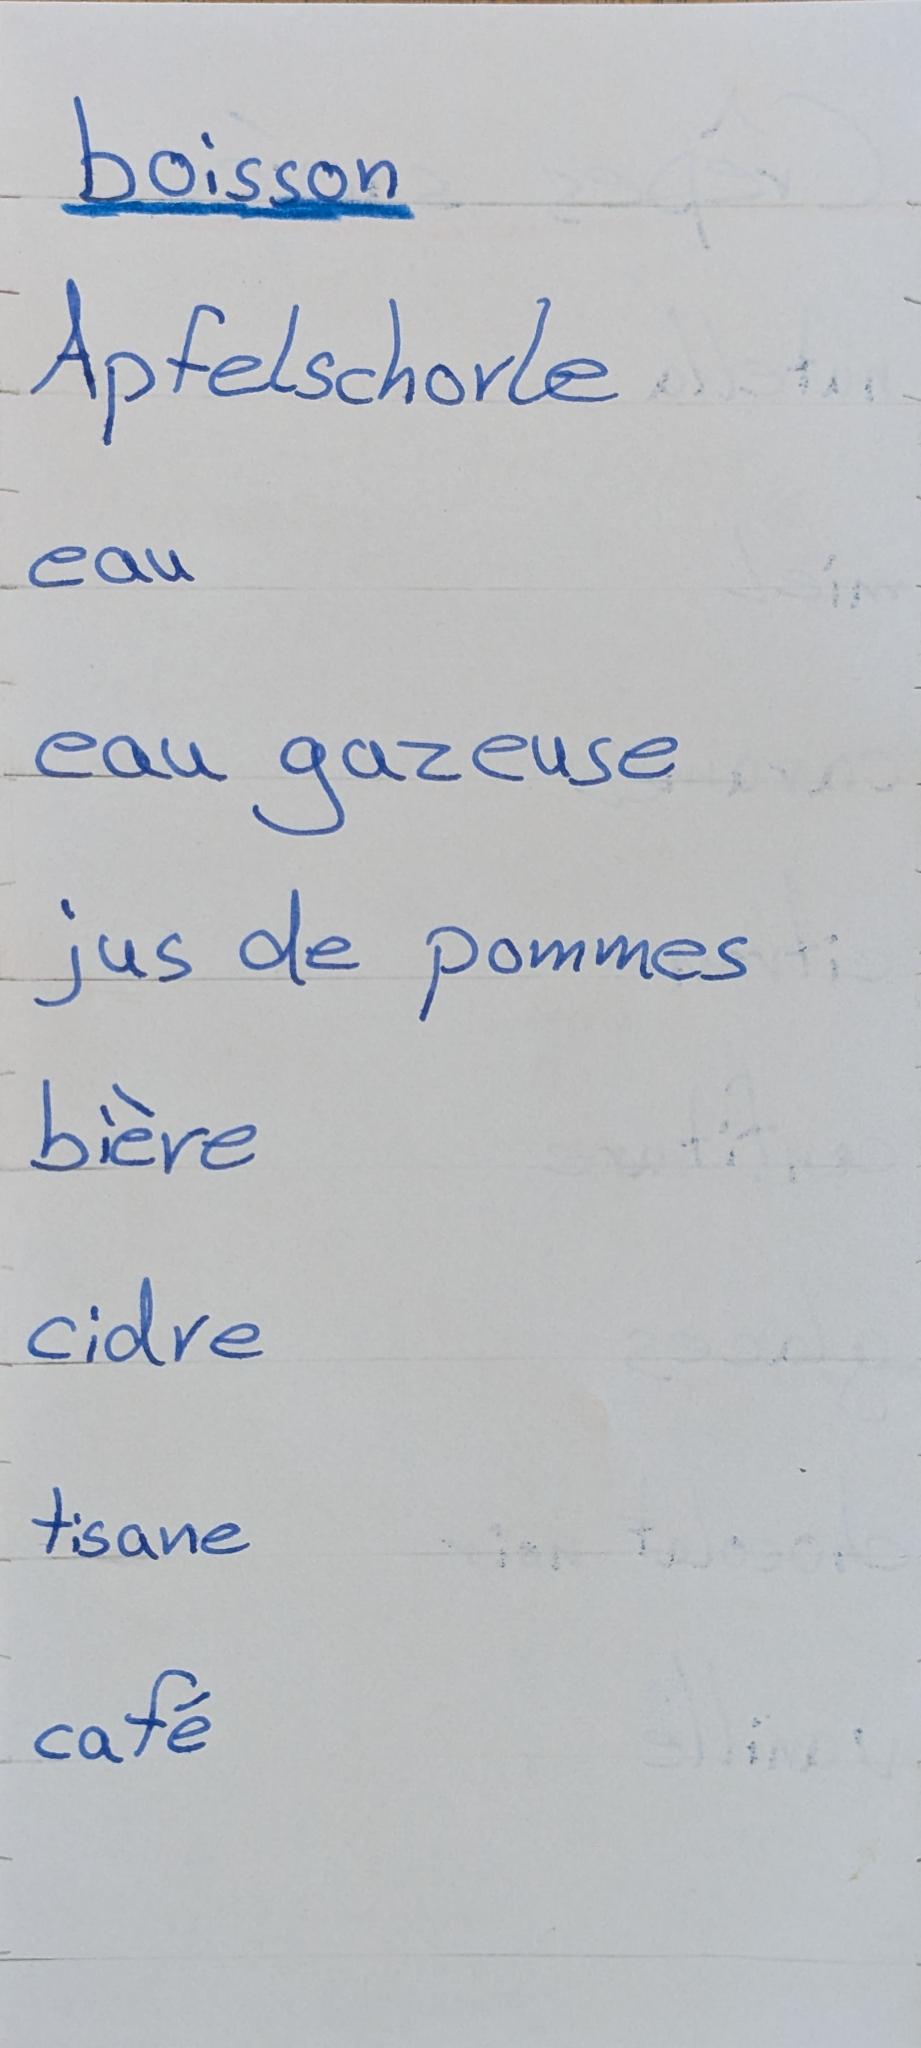 boisson
Apfelschorle
eau
eau gazeuse
jus de pommes
bière
cidre
tisane
café